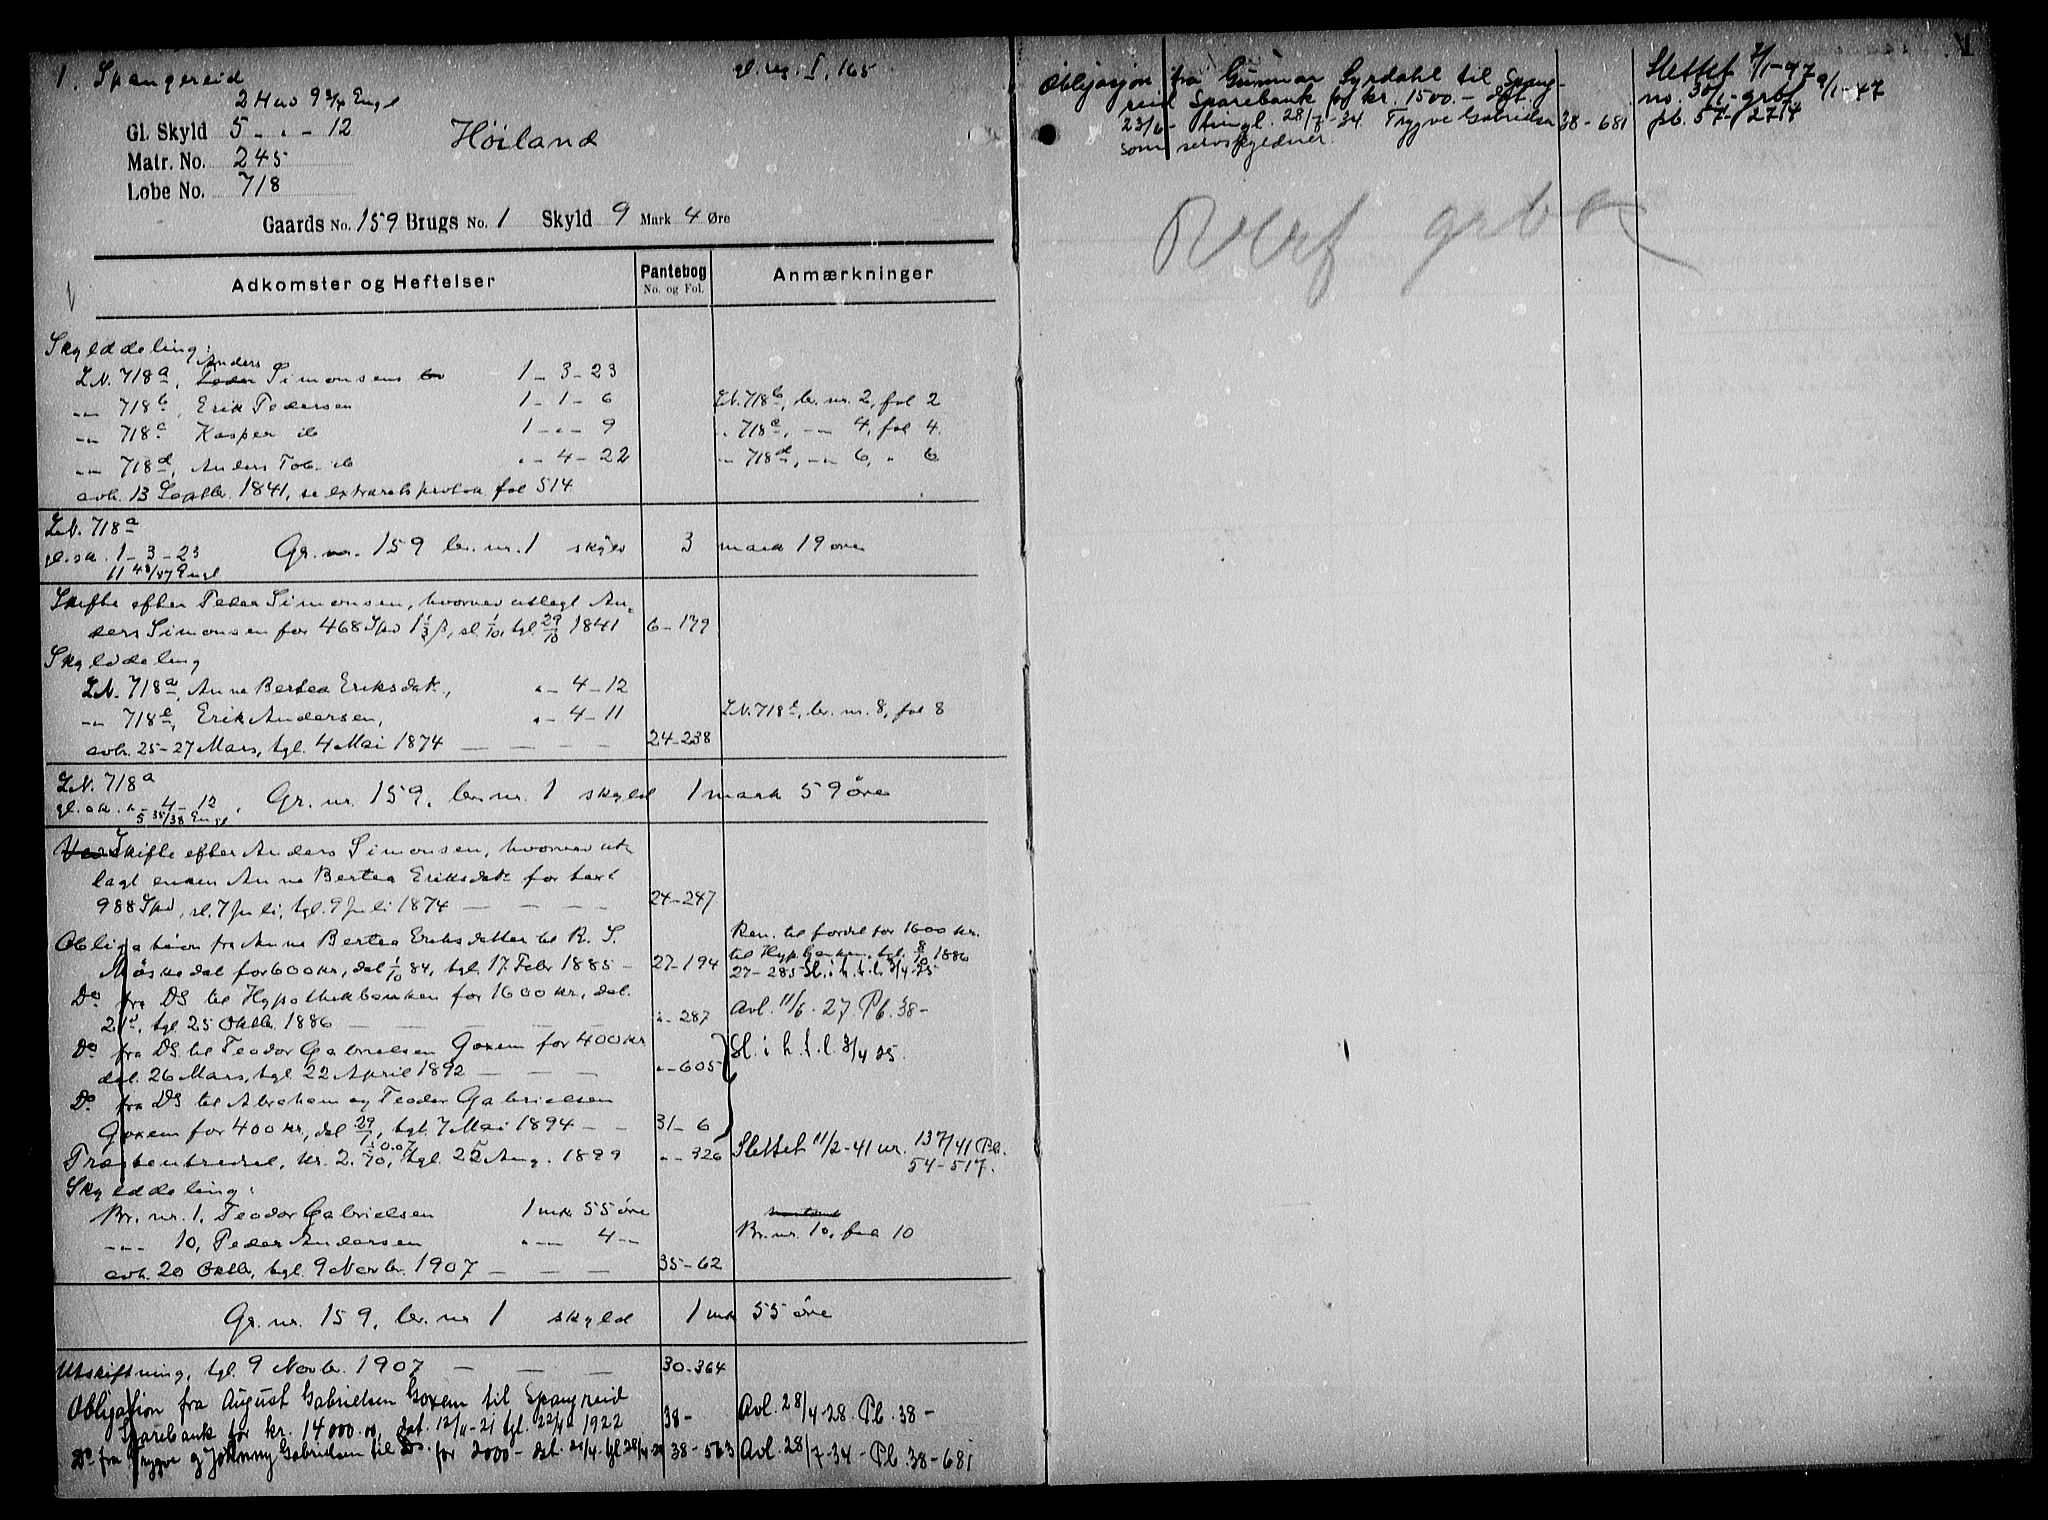 1. Spangereid
gl. reg. I, 165
2 Hud 9 3/4 Engl
Gl. Skyld 5 - " - 12
Høiland
Matr. No. 245
Løbe No. 718
Gaards No. 159 Brugs No. 1 Skyld 9 Mark 4 Øre
Adkomster og Heftelser
Pantebog
No. og Fol.
Anmærkninger
Skylddeling:
L.N. 718a, Anders Simonsens 1 - 3 - 23
-"- 718b, Erik Pedersen 1 - 1 - 6 L.N. 718b, br. nr. 2, fol 2
-"- 718c Kasper do 1 - " - 9 " 718c, -"- 4, fol 4
-"- 718d, Anders Tob. do " - 4 - 22 -"- 718d, -"- 6, " 6
avh. 13 Septbr. 1841, se extraretsprotok fol 514
L.N. 718a
gl. sk. 1 - 3 - 23 Gr. nr. 159 br. nr. 1 skyld 3 mark 19 øre
11 48/47 Engl
Skifte efter Peder Simonsen, hvorved utlagt An-
ders Simonsen for 468 Spd 1 1/3 ß, sl. 1/10, tgl. 29/10 1841 6 - 179
Skylddeling
L.N. 718a, Anne Bertea Eriksdatr., " - 4 - 12
-"- 718e, Erik Andersen, " - 4 - 11 L.N. 718e, br. nr. 8, fol 8
avh. 25-27 Mars, tgl. 4 Mai 1874 - - - - 24 - 238
L.N. 718a
gl. sk. " - 4 - 12. Gr. nr. 159, br. nr. 1 skyld 1 mark 59 øre
5 35/38 Engl
Ved Skifte efter Anders Simonsen, hvorved ut-
lagt enken Anne Bertea Eriksdatr for taxt
988 Spd, sl. 7 Juli, tgl. 9 Juli 1874 - - - - 24 - 247
Obligation fra Anne Bertea Eriksdatter til R. S.
Møskedal for 600 kr., dat 1/10 84, tgl. 17. Febr 1885 - 27 - 194
Ren. til fordel for 1600 kr.
til Hyp.banken, tgl. 8/10 1886
27 - 285 Sl. i h. t. l. 3/4 25
Do fra DS til Hypothekbanken for 1600 kr., dat.
21d, tgl 25 Oktbr. 1886 - - - - " - 287 Avl. 11/6. 27. Pb. 38 -
Do fra DS. til Teodor Gabrielsen Goxem for 400 kr
dat. 26 Mars, tgl. 22 April 1892 - - - " - 605 Sl. i h. t. l. 3/4 25.
Do fra DS til Abraham og Teodor Gabrielsen
Goxem for 400 kr., dat 29/1, tgl. 7 Mai 1894 - - 31 - 6
tgl. 25 Aug. 1899 " - 326 Slettet 11/2-41 nr. 137/41 Pb.
54 - 517.
Skylddeling:
Br. nr. 1, Teodor Gabrielsen 1 mk 55 øre
-"- 10, Peder Andersen " -"- 4 -"- Br. nr. 10, fol 10
avh. 20 Oktbr, tgl. 9 Novbr. 1907 - - - 35 - 62
Gr. nr. 159, br. nr 1 skyld 1 mk 55 øre
Utskiftning, tgl. 9 Novbr. 1907 - - - 30 - 364
Obligation fra August Gabrielsen Goxem til Spangreid
Sparebank for kr. 14000.00, dat. 12/11-21 tgl. 22/4 1922 38 - Avl. 28/4-28. Pb. 38 -
Do fra Trygve og Johnny Gabrielsen til Ds. for 2000 - dat. 21/4 - tgl 28/4-28 38 - 563 Avl. 28/7-34 - Pb. 38 - 681
Obligasjon fra Gunnar Syrdahl til Spang-
reid Sparebank for kr. 1500. - dat.
23/6 - tingl. 28/7-34. Trygve Gabrielsen 38 - 681
som selvskyldner.
Slettet 7/1-47
no. 30/1 - grbf 9/1-47
pb. 57 - 274
grbok